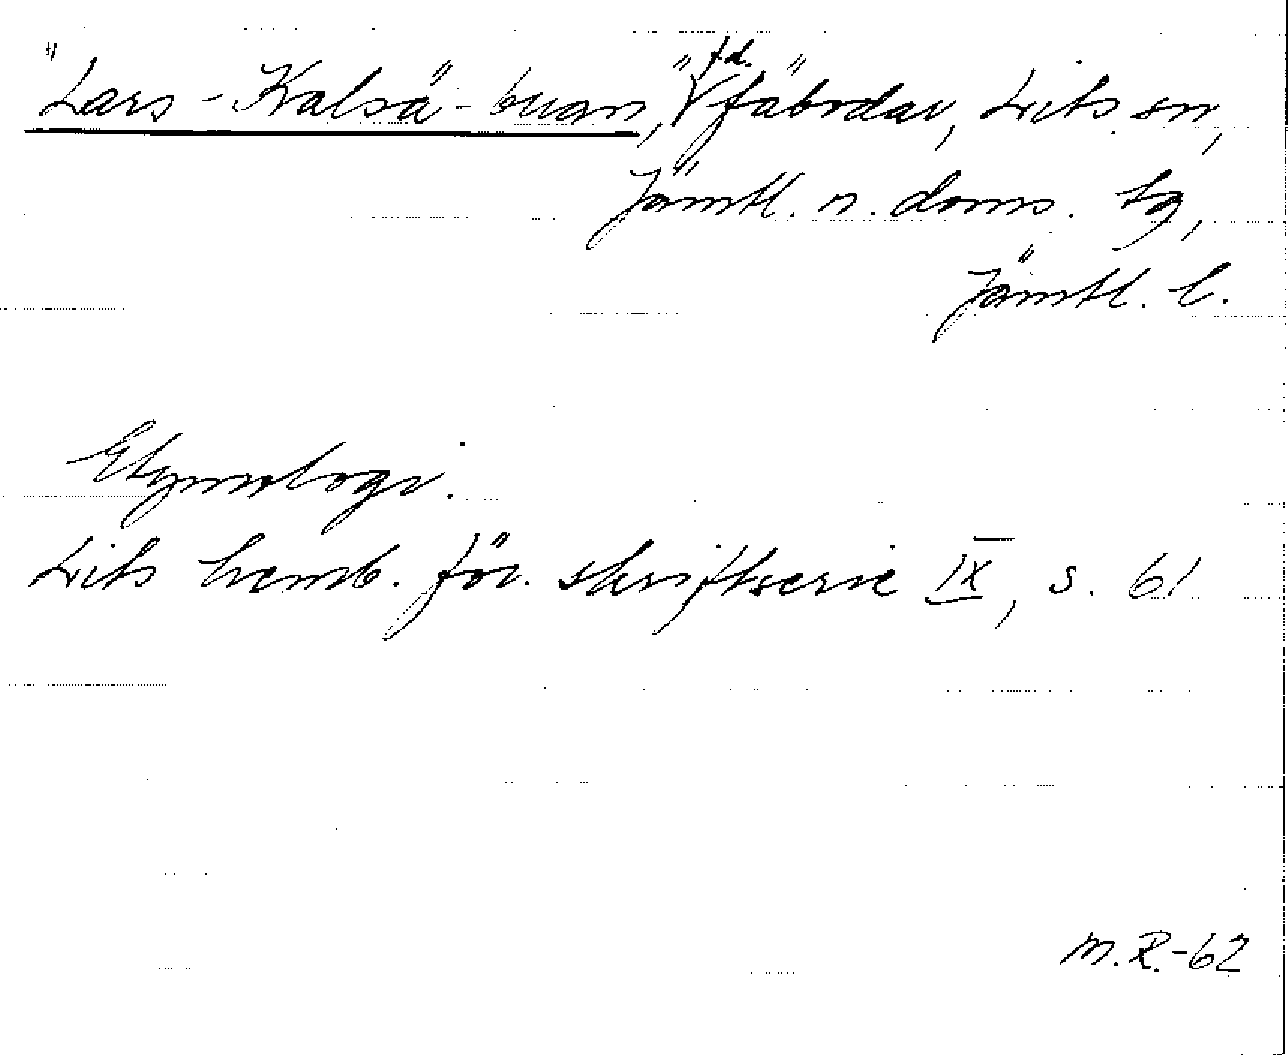 "Lars-Kalsä-buan," fd. fäbodar, Lits sn,
Jämtl. n. doms. tg,
Jämtl. l.
Etymologi.
Lits hemb. för. skriftserie IX, s. 61
M.R.-62